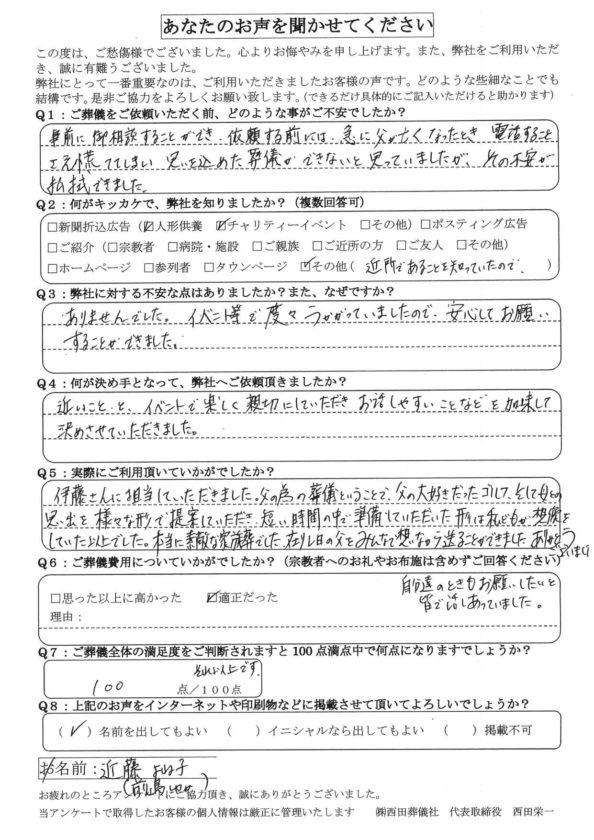 あなたのお声を聞かせてください
この度は、ご愁傷様でございました。心よりお悔やみを申し上げます。また、弊社をご利用いただ
き、誠に有難うございました。
弊社にとって一番重要なのは、ご利用いただきましたお客様の声です。どのような些細なことでも
結構です。是非ご協力をよろしくお願い致します。(できるだけ具体的にご記入いただけると助かります)
Q1:ご葬儀をご依頼いただく前、どのような事がご不安でしたか?
事前に御相談することができ、依頼する前には、急に父が亡くなったとき 電話すること
さえ慌ててしまい 思いを込めた葬儀ができないと思っていましたが、その不安が
払拭できました。
Q2:何がキッカケで、弊社を知りましたか?(複数回答可)
□新聞折込広告(☑人形供養 ☑チャリティーイベント □その他)□ポスティング広告
□ご紹介(□宗教者 □病院・施設 □ご親族 □ご近所の方 □ご友人 □その他)
□ホームページ □参列者 □タウンページ ☑その他( 近所であることを知っていたので、 )
Q3:弊社に対する不安な点はありましたか?また、なぜですか?
ありませんでした。イベント等で度々うかがっていましたので、安心してお願い
することができました。
Q4:何が決め手となって、弊社へご依頼頂きましたか?
近いことと、イベントで楽しく親切にしていただき お話しやすいことなどを加味して
決めさせていただきました。
Q5:実際にご利用頂いていかがでしたか?
伊藤さんに担当していただきました。父の為の葬儀ということで、父の大好きだったゴルフ、そして母との
思い出を様々な形で提案していただき、短い時間の中で準備していただいた形は私どもが想像を
していた以上でした。本当に素敵な家族葬でした。在りし日の父をみんなで想いながら送ることができました。ありがとう
ございました
Q6:ご葬儀費用についていかがでしたか?(宗教者へのお礼やお布施は含めずご回答ください)
□思った以上に高かった ☑適正だった
理由:
自分達のときもお願いしたいと
皆で話しあっていました。
Q7:ご葬儀全体の満足度をご判断されますと100点満点中で何点になりますでしょうか?
それ以上です。
100 点/100点
Q8:上記のお声をインターネットや印刷物などに掲載させて頂いてよろしいでしょうか?
(✓)名前を出してもよい ( )イニシャルなら出してもよい ( )掲載不可
お名前:近藤 よね子
お疲れのところアンケートにご協力頂き、誠にありがとうございました。
当アンケートで取得したお客様の個人情報は厳正に管理いたします ㈱西田葬儀社 代表取締役 西田栄一